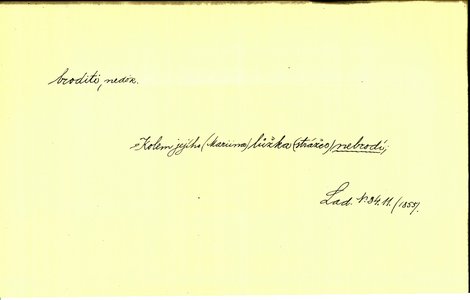 broditi, nedok.
„Kolem jejího (Mariina) lůžka (strážce) nebrodí,
Lad. N. 84. 11. /1855/.